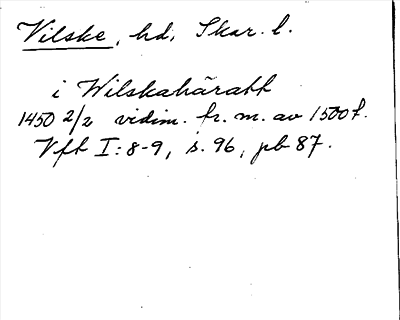 Vilske, hd, Skar. l.
i Wilskahäratt
1450 2/2 vidim. fr. m. av 1500 t.
Vft I:8-9, s. 96, pb 87.